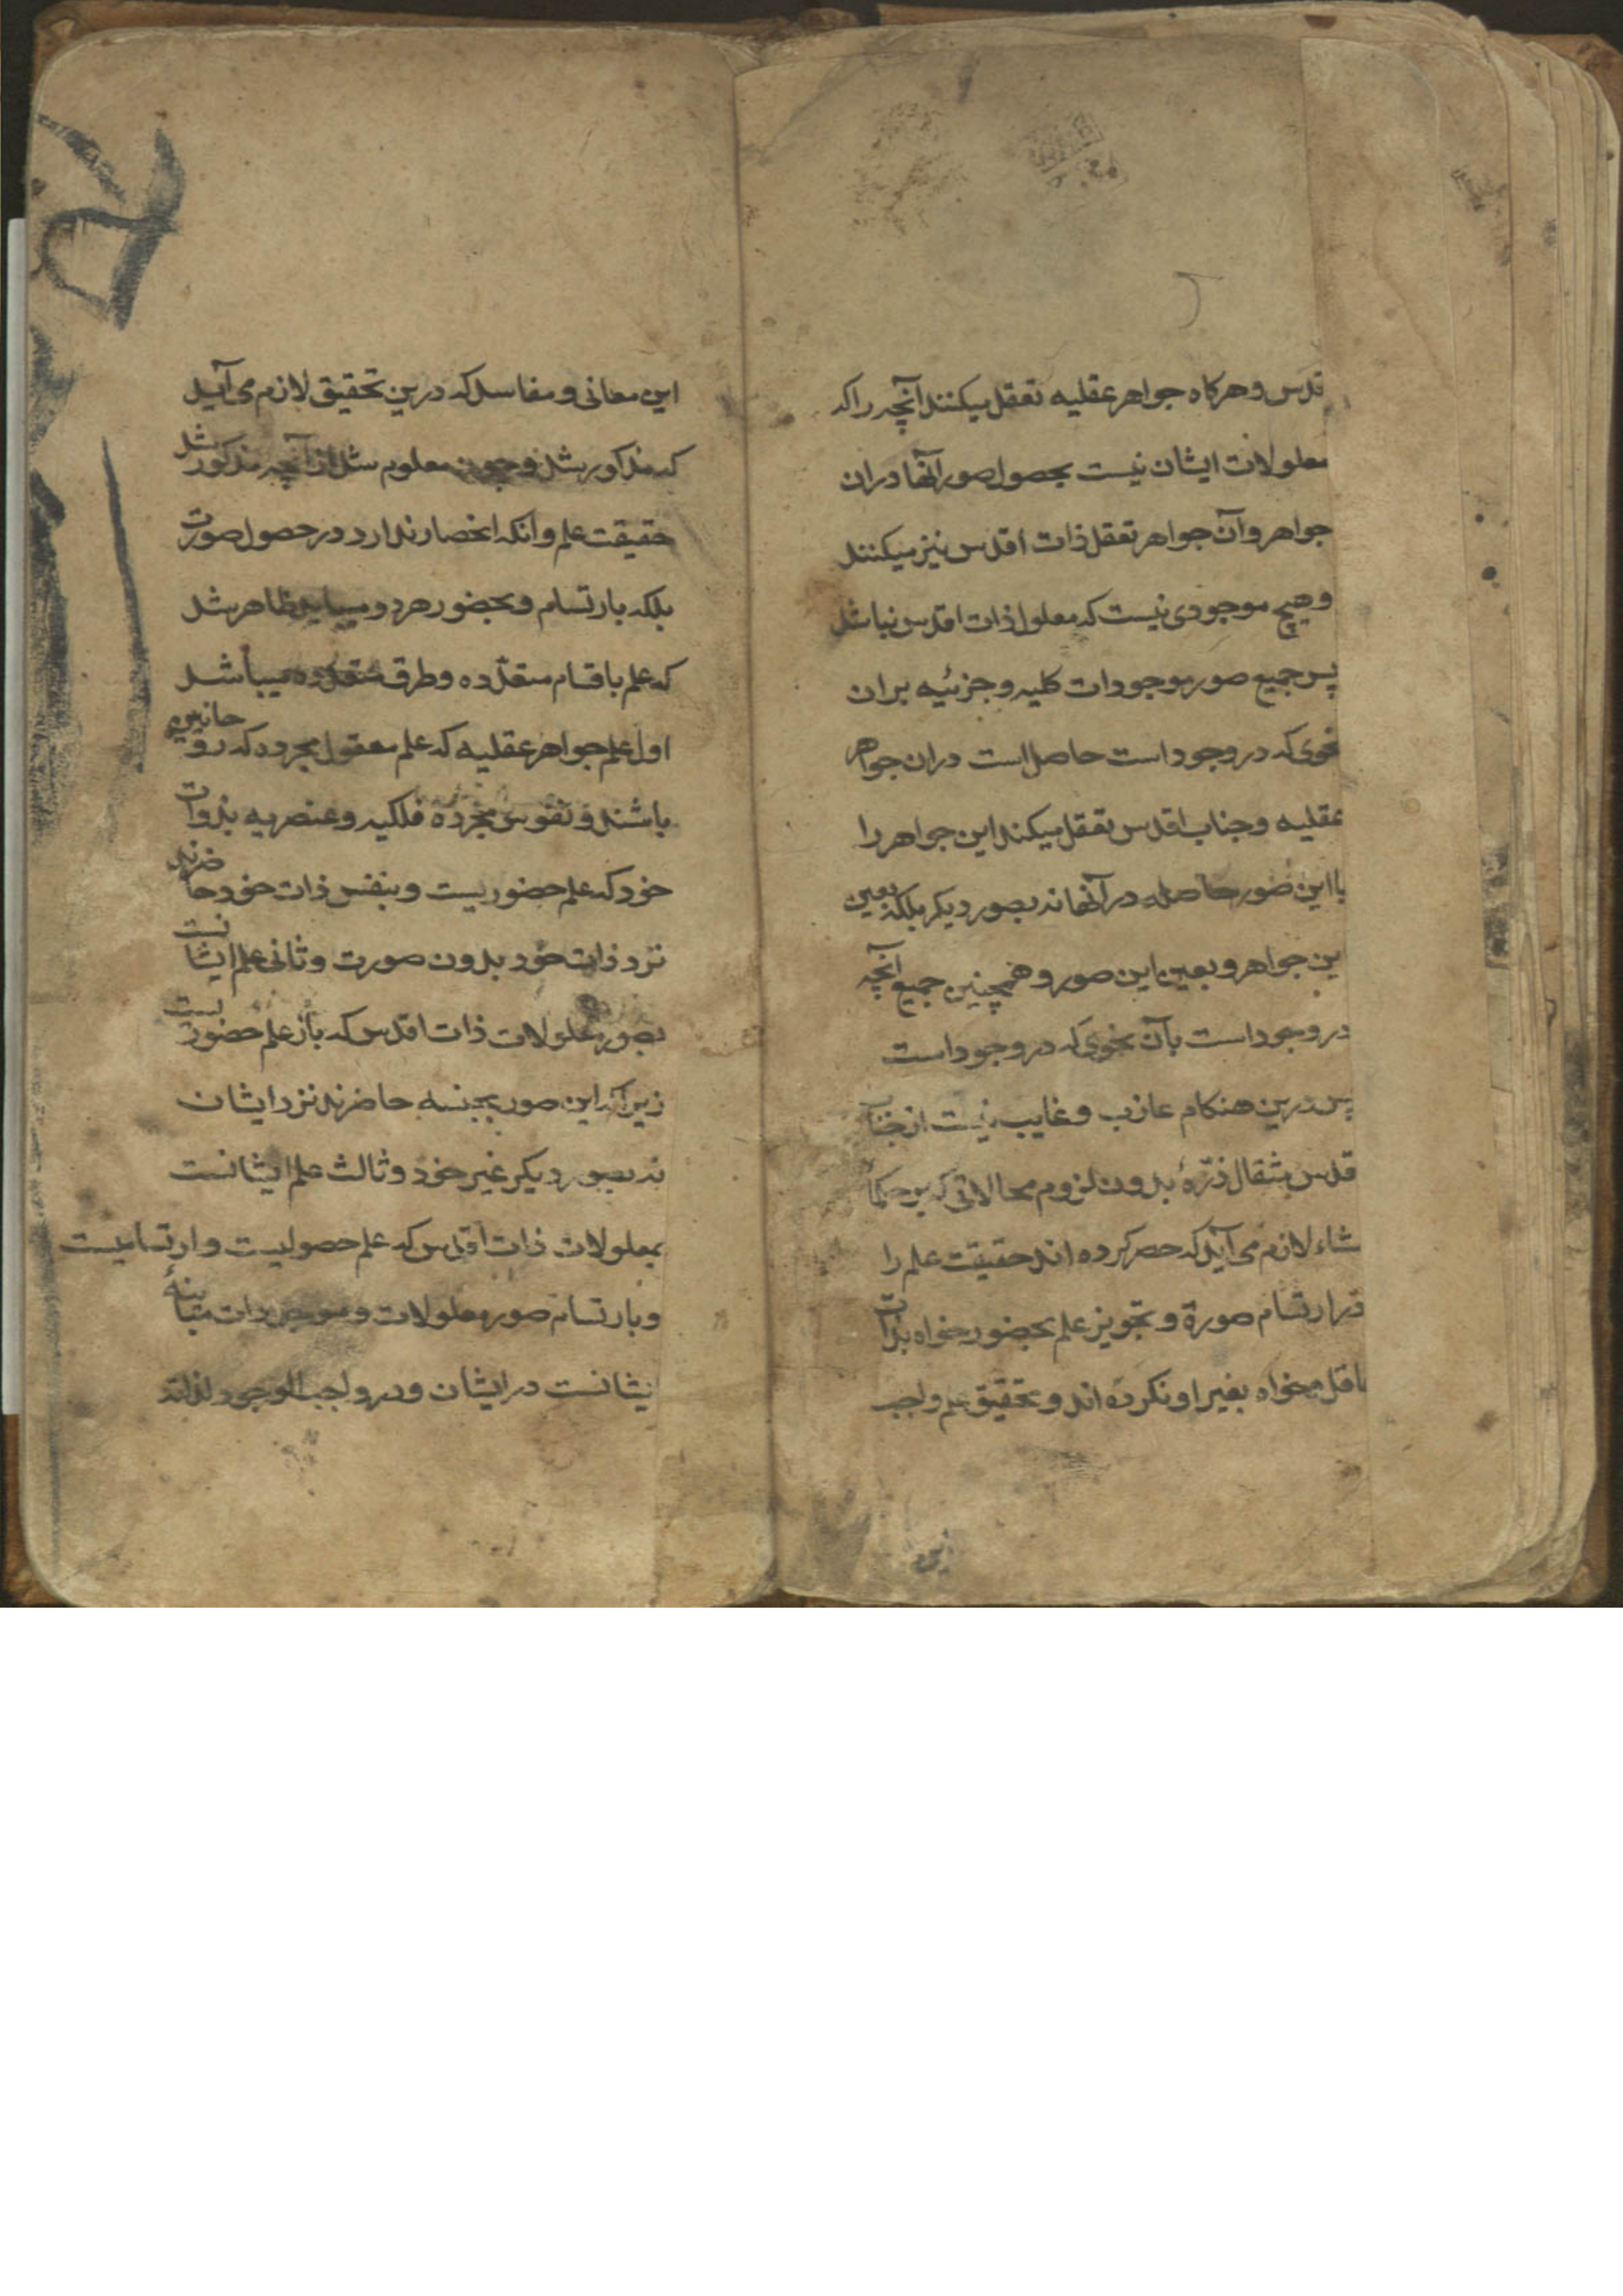 قدس و هرکاه جواهر عقلیه تعقل میکنند آنچه را که
معلولات ایشان نیست بحصول صور آنها در ان
جواهر و آن جواهر تعقل ذات اقدس نیز میکنند
و هیچ موجودی نیست که معلول ذات اقدس نباشد
پس جمیع صور موجودات کلیه و جزئیه بر ان
نحوی که در وجود است حاصل است در ان جواهر
عقلیه و جناب اقدس تعقل میکند این جواهر را
با این صور حاصله در آنها نه بصور دیکر بلکه بعین
این جواهر و بعین این صور و همچنین جمیع آنچه
در وجود است بآن نحوی که در وجود است
پس درین هنکام عازب و غایب نیست از جناب
قدس مثقال ذرّهٔ بدون لزوم محالاتی که بر حکمآ
مشاء لازم می آید که حصر کرده اند حقیقت علم را
در ارتسام صورة و تجویز علم بحضور خواه بذات
عاقل و خواه بغیر او نکرده اند و تحقیق علم واجب
این
این معانی و مفاسد که درین تحقیق لازم می آید
که مذکور شد و چون معلوم شد از آنچه مذکور شد
حقیقت علم و آنکه انحصار ندارد در حصول صورت
بلکه بارتسام و بحضور هر دو میباید ظاهر شد
که علم باقسام متعدّده و طرق متعدده میباشد
اول علم جواهر عقلیه که علم معقول مجرده که روحانیون
باشند و نفوس مجرّده فلکیه و عنصریه بذوات
خود که علم حضوریست و بنفس ذات خود حاضرند
نزد ذات خود بدون صورت و ثانی علم ایشانست
بصور معلولات ذات اقدس که باز علم حضوریست
زیرا که این صور بجنسه حاضرند نزد ایشان
نه بصور دیکر غیر خود و ثالث علم ایشانست
بمعلولات ذات اقدس که علم حصولیست و ارتسامیست
و بارتسام صور معلولات و موجودات مباینهٔ
ایشانست در ایشان و در واجب الوجود لذاته